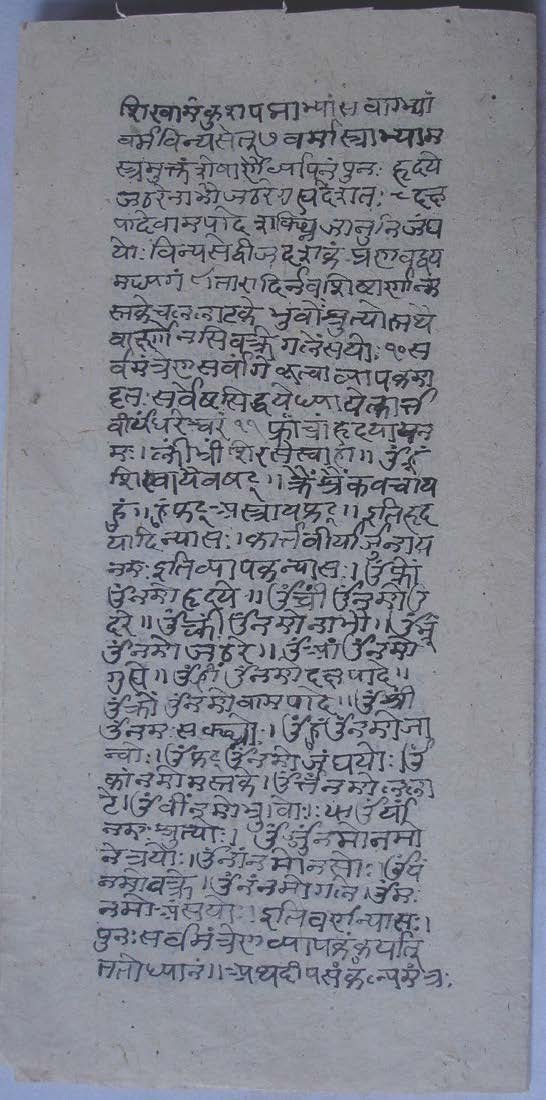 शिखामंकुशपद्माभ्यांसवाग्भ्यां
वर्मविन्यसेत् ७ वर्मास्त्राभ्याम
स्त्रमुक्तंशेषार्णैर्व्यापिनंपुनः हृदये
जठरेनाभौजठरेगुह्यदेशतः ८ दक्ष
पादेवामपादे सक्थ्निजानुनिजंघ
योः विन्यसेद्बीजदशकं प्रणवद्वय
मध्यगं ९ तारादिर्नवशिष्टार्णान्म
स्तकेचललाटके भ्रुवोःश्रुत्योस्तथै
वाक्ष्णोर्नसिवक्त्रे गलेंसयोः १० स
र्वमंत्रेणसर्वांगे कृत्वा व्यापकमा
दृतः सर्वेष्टसिद्धयेध्यायेत्कार्त्त
वीर्यंधरेश्वरं ११ फ्रोंव्रांहृदयायन
मः।क्लींभ्रींशिरसेस्वाहा॥ ॐहूं
शिखायैवषट्॥ क्रैंश्रैंकवचाय
हुं॥हुंफट् अस्त्रायफट्॥ इतिहृद
यादिन्यासः।कार्त्तवीर्यार्जुनाय
नमःइतिव्यापकन्यासः।ॐफ्रों
ॐनमोहृदये॥ॐव्रीं ॐनमोउ
दरे॥ॐक्लीं ॐनमोनाभौ॥ॐभ्रूं
ॐनमोजठरे॥ॐआं ॐनमो
गुह्ये॥ॐह्रीं ॐनमोदक्षपादे॥
ॐक्रों ॐनमोवामपादे॥ॐश्रीं
ॐनमःसक्थ्नोः।ॐहुं ॐनमोजा
न्वोः।ॐफट् ॐनमोजंघयोः।ॐ
कांनमोमस्तके।ॐर्त्तंनमोलला
टे।ॐवींनमोभ्रुवोः।ॐर्यां
नमःश्रुत्योः। ॐर्जुंनमोनमो
नेत्रयोः।ॐनांनमोनसोः।ॐयं
नमोवक्त्रे।ॐनंनमोगले।ॐमः
नमोअंसयोः।इतिवर्णन्यासः।
पुनःसर्वमंत्रेणव्यापकंकुर्यात्
ततोध्यानं॥अथदीपसंकल्पमंत्रः